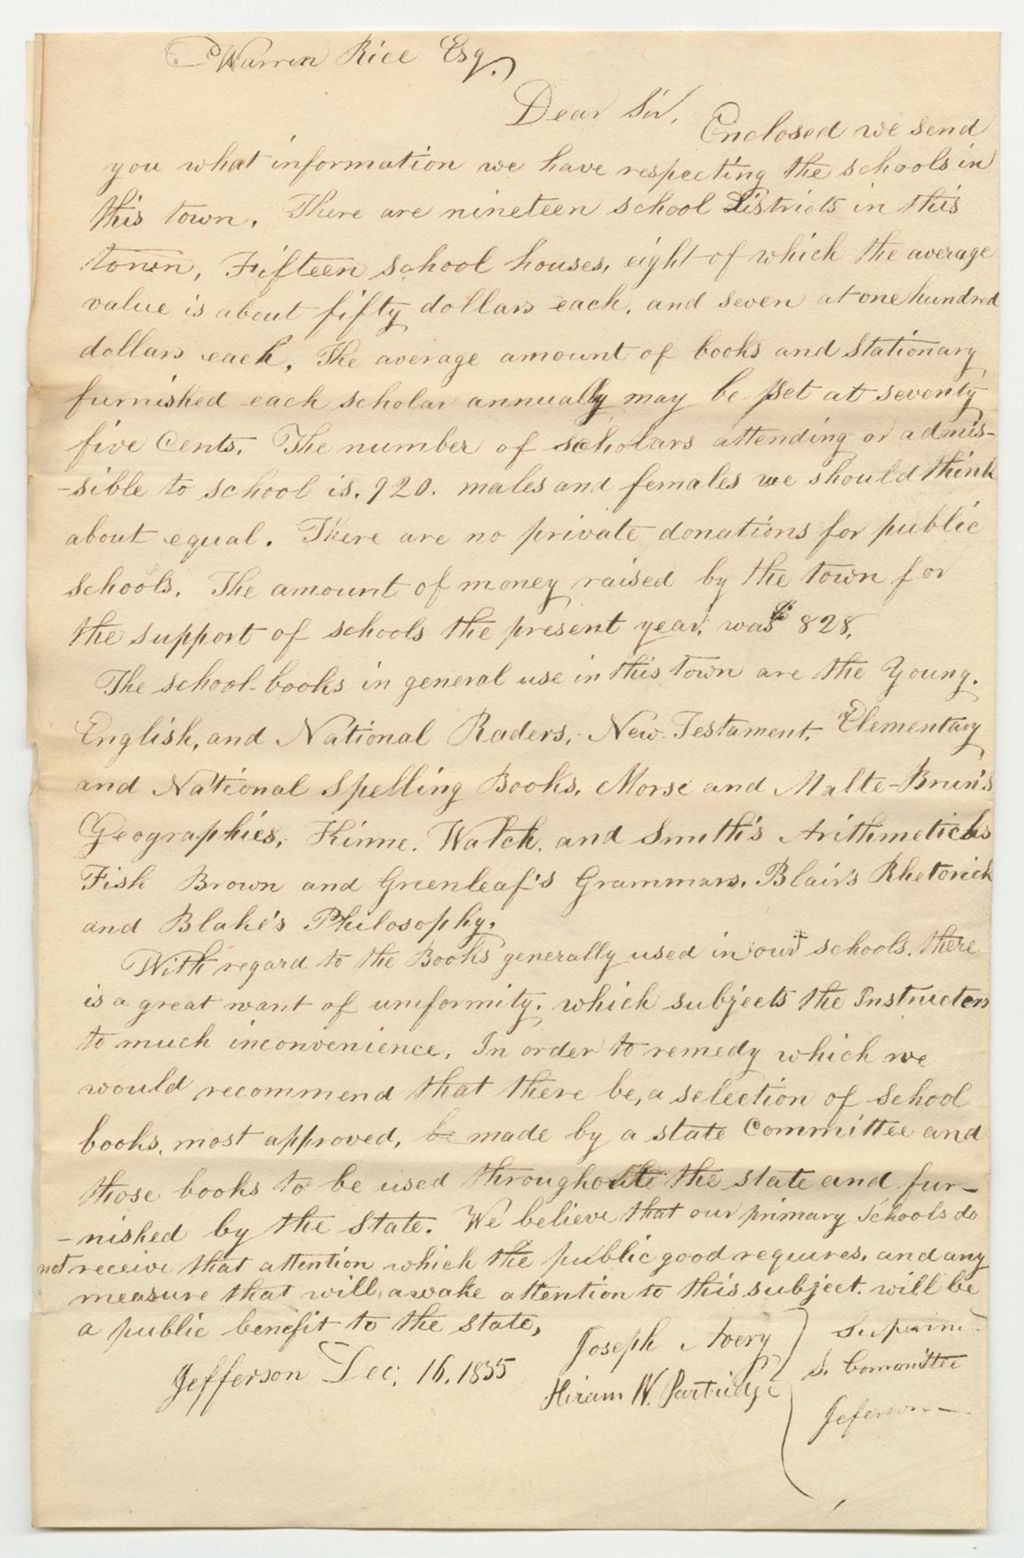 Warren Rice Esq.
Dear Sir, Enclosed we send
you what information we have respecting the schools in
this town. There are nineteen school Districts in this
town, Fifteen school houses, eight of which the average
value is about fifty dollars each, and seven at one hundred
dollars each. The average amount of books and Stationary
furnished each scholar annually may be set at seventy
five Cents. The number of scholars attending or admis-
-sible to school is. 920. males and females we should think
about equal. There are no private donations for public
schools. The amount of money raised by the town for
the support of schools the present year, was $ 828.
The school-books in general use in this town are the Young.
English, and National Raders, New-Testament. Elementary
and National Spelling Books, Morse and Malte-Brun's
Geographies, Kinne. Walch. and Smith's Arithmeticks
Fisk Brown and Greenleaf's Grammars. Blair's Rhetorick
and Blake's Philosophy.
With regard to the Books generally used in our schools. there
is a great want of uniformity. which subjects the Instructors
to much inconvenience. In order to remedy which we
would recommend that there be, a selection of School
books, most approved, be made by a state Committee and
those books to be used throughoute the state and fur-
-nished by the State. We believe that our primary Schools do
not receive that attention which the public good requires, and any
measure that will awake attention to this subject. will be
a public benefit to the state,
Jefferson Dec; 16, 1835
Joseph Avery
Hiram W. Partridge
Superin-
S. Committee
Jeferson